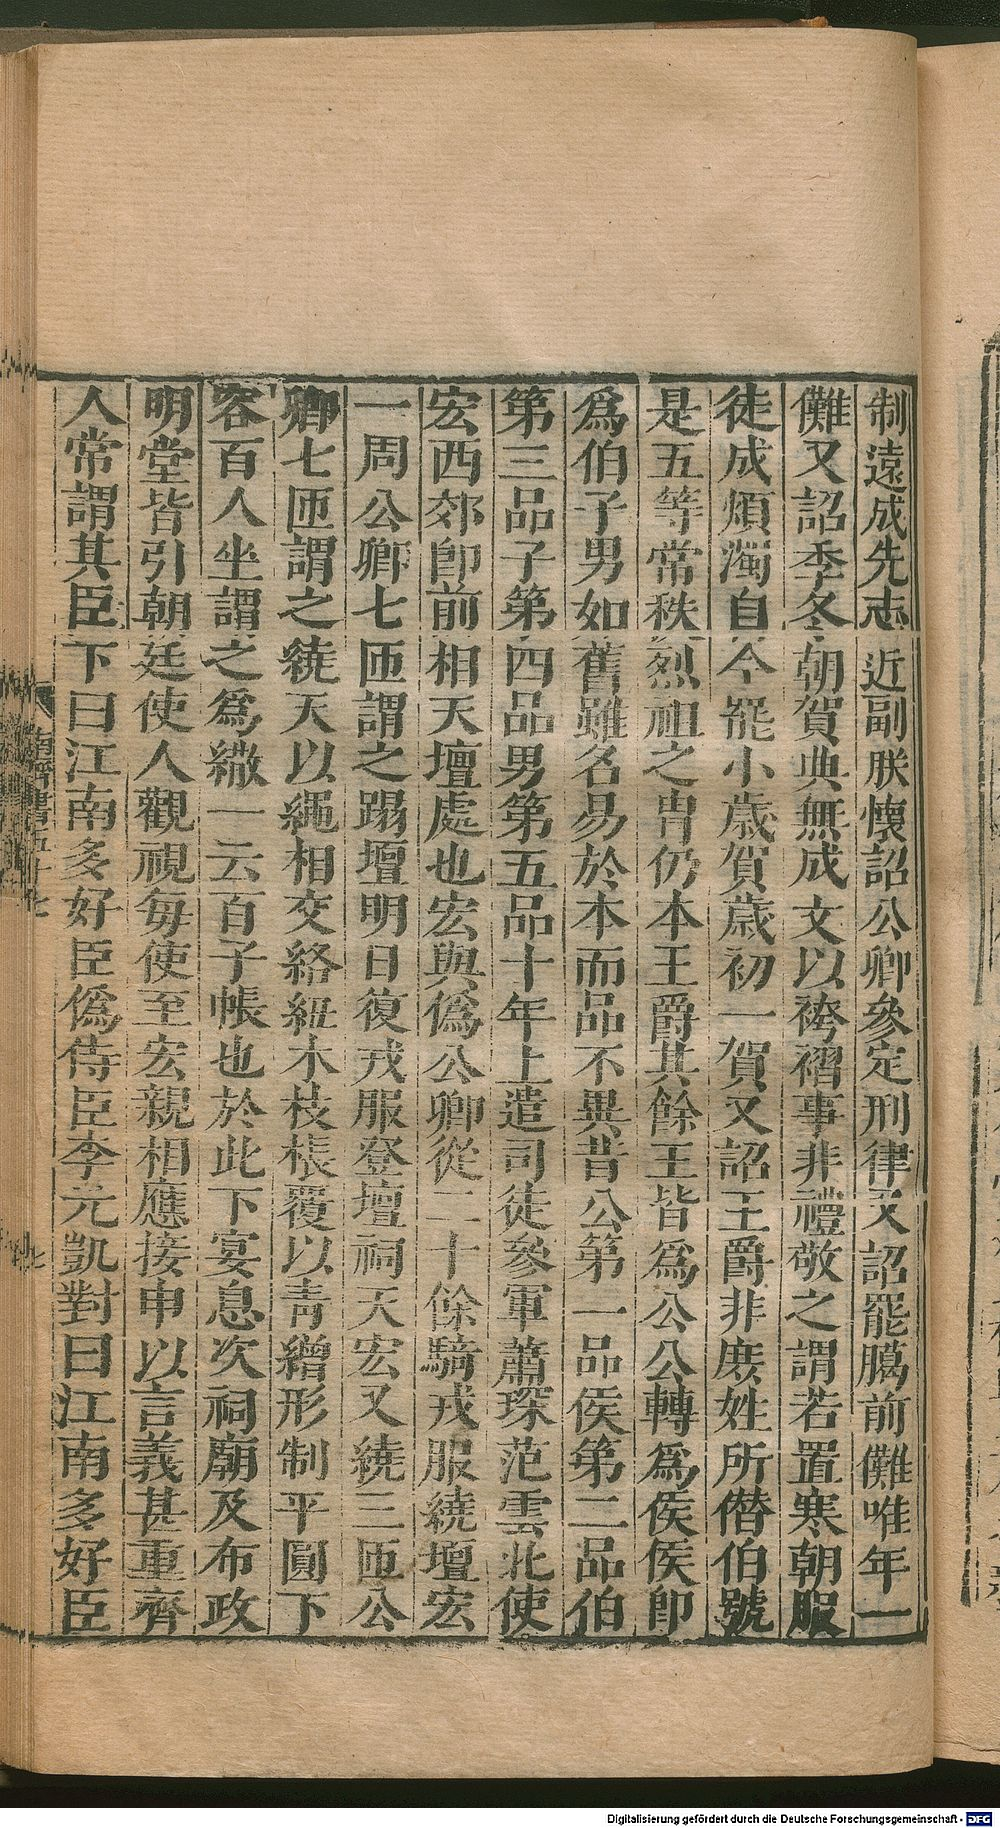 制遠成先志近副朕懷詔公卿參定刑律又詔罷臈前儺唯年一
儺又詔季冬朝賀典無成文以袴褶事非禮敬之謂若置寒朝服
徒成煩濁自今罷小歳賀歳初一賀又詔王爵非庶姓所僣伯號
是五等常秩烈祖之胄仍本王爵其餘王皆爲公公轉爲侯侯卽
爲伯子男如舊雖名易於本而品不異昔公第一品侯第二品伯
第三品子第四品男第五品十年上遣司徒參軍蕭琛范雲北使
宏西郊卽前相天壇處也宏與僞公卿從二十餘騎戎服繞壇宏
一周公卿七匝謂之蹋壇明日復戎服登壇祠天宏又繞三匝公
卿七匝謂之繞天以繩相交絡紐木枝棖覆以青繒形制平圓下
容百人坐謂之爲繖一云百子帳也於此下宴息次祠廟及布政
明堂皆引朝廷使人觀視每使至宏親相應接申以言義甚重齊
人常謂其臣下曰江南多好臣僞侍臣李元凱對曰江南多好臣
南齊書五十七
Digitalisierung gefördert durch die Deutsche Forschungsgemeinschaft - DFG